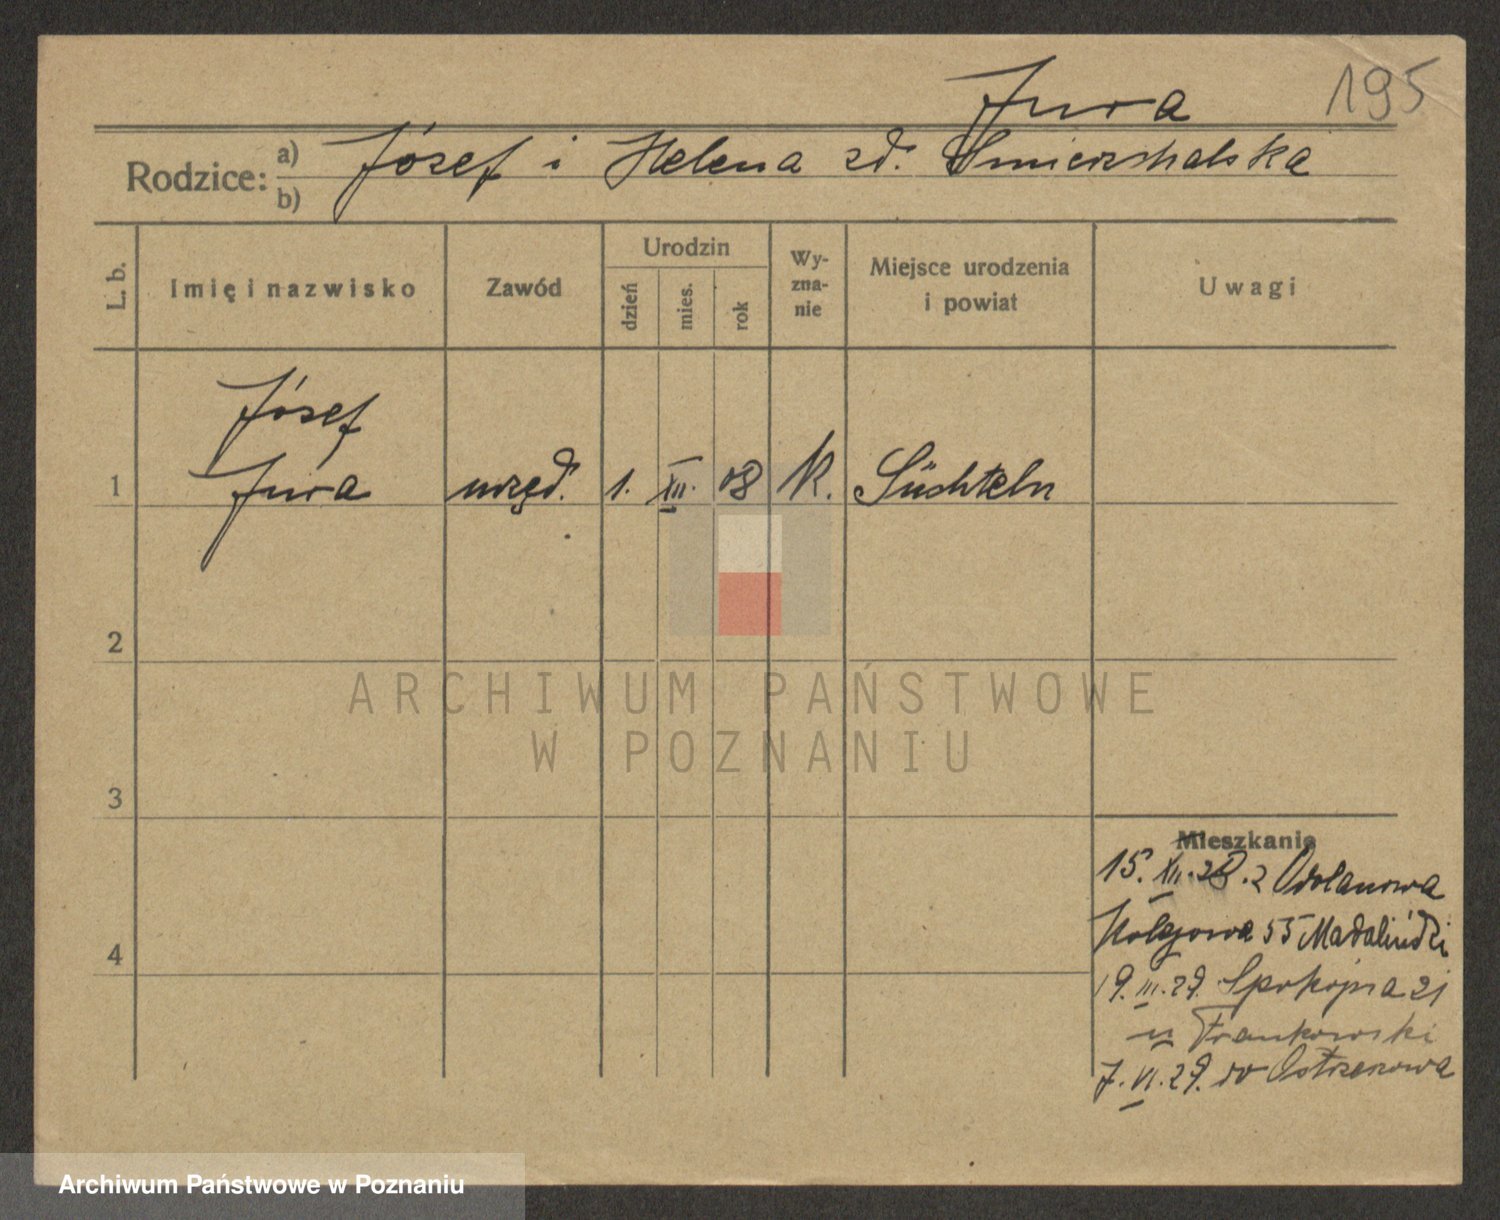 195
Jura
Rodzice: a) b) Józef i Helena zd. Smierzchalska
L. b.
Imię i nazwisko
Zawód
Urodzin
dzień
mies.
rok
Wy-
zna-
nie
Miejsce urodzenia
i powiat
Uwagi
Józef
1 Jura urzęd. 1. XII. 08 K. Süchteln
2
3
4
Mieszkanie
15. XII. 28. z Odolanowa
Kolejowa 55 Madaliński
19. III. 29. Spokojna 21
u Frankowski
7. VI. 29. do Ostrzeszowa
ARCHIWUM PAŃSTWOWE
W POZNANIU
Archiwum Państwowe w Poznaniu